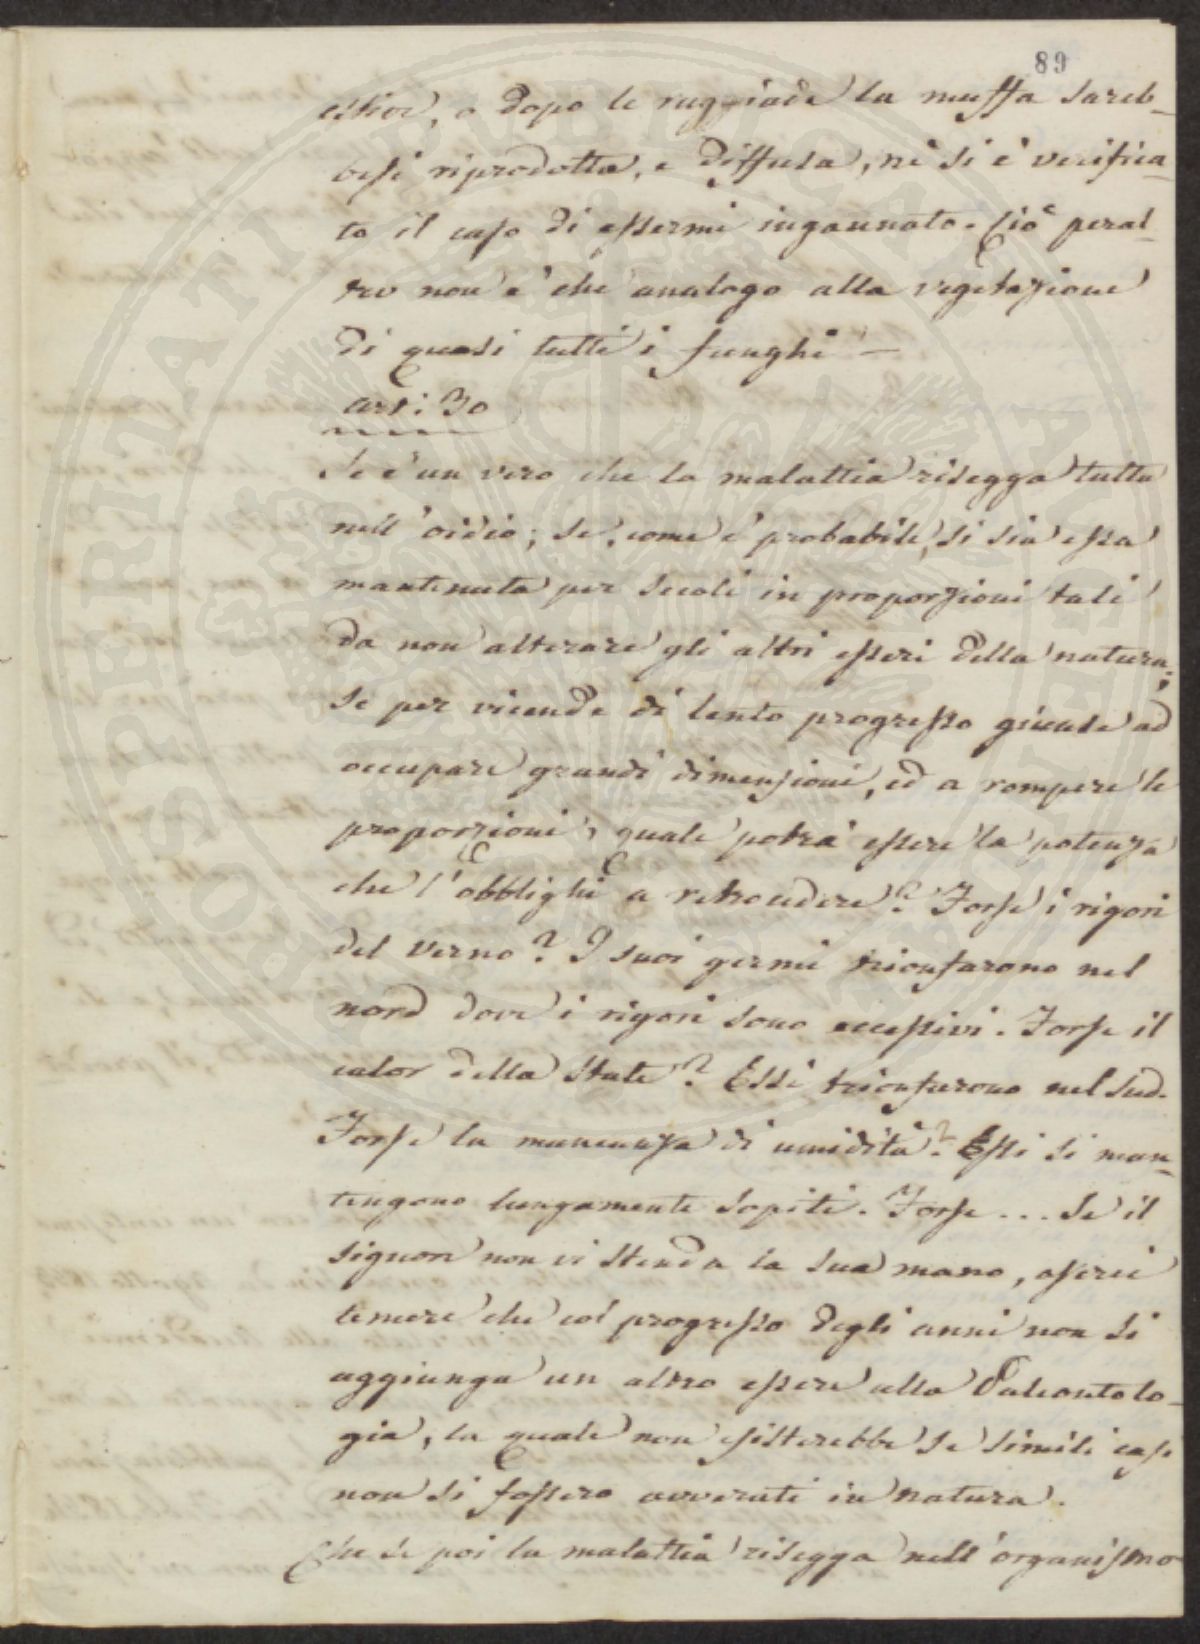 89
estive, o dopo le ruggiade la muffa sareb-
besi riprodotta, e diffusa, nè si è verifica-
to il caso di essermi ingannato. Ciò peral-
tro non è che analogo alla vegetazione
di quasi tutti i funghi —
Art: 30
Se è un vero che la malattia risegga tutta
nell'oidio; se, come è probabile, si sia essa
mantenuta per secoli in proporzioni tali
da non alterare gli altri esseri della natura;
se per vicende di lento progresso giunse ad
occupare grandi dimensioni, ed a rompere le
proporzioni, quale potrà essere la potenza
che l'obblighi a retrocedere? Forse i rigori
del verno? I suoi germi trionfarono nel
nord dove i rigori sono eccessivi. Forse il
calor della state? Essi trionfarono nel sud.
Forse la mancanza di umidità? Essi si man-
tengono lungamente sopiti. Forse ... Se il
signore non vi stenda la sua mano, oserei
temere che col progresso degli anni non si
aggiunga un altro essere alla Paleontolo-
gia, la quale non esisterebbe se simili casi
non si fossero avverati in natura.
Che se poi la malattia risegga nell'organismo
PROSPERITATI PUBLICAE AUGENDAE